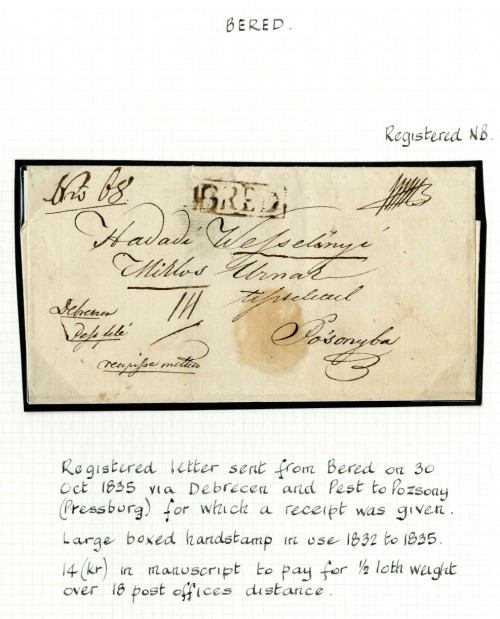 BERED.
Registered NB.
Nro 68.
BRED
NB
Hadadi Wesselényi
Miklos Urnak
Debreczen
Pest felé
14
tisztelettel
Posonyba
recepisse mellett
Registered letter sent from Bered on 30
Oct 1835 via Debrecen and Pest to Pozsony
(Pressburg) for which a receipt was given.
Large boxed handstamp in use 1832 to 1835.
14 (kr) in manuscript to pay for ½ loth weight
over 18 post offices distance.